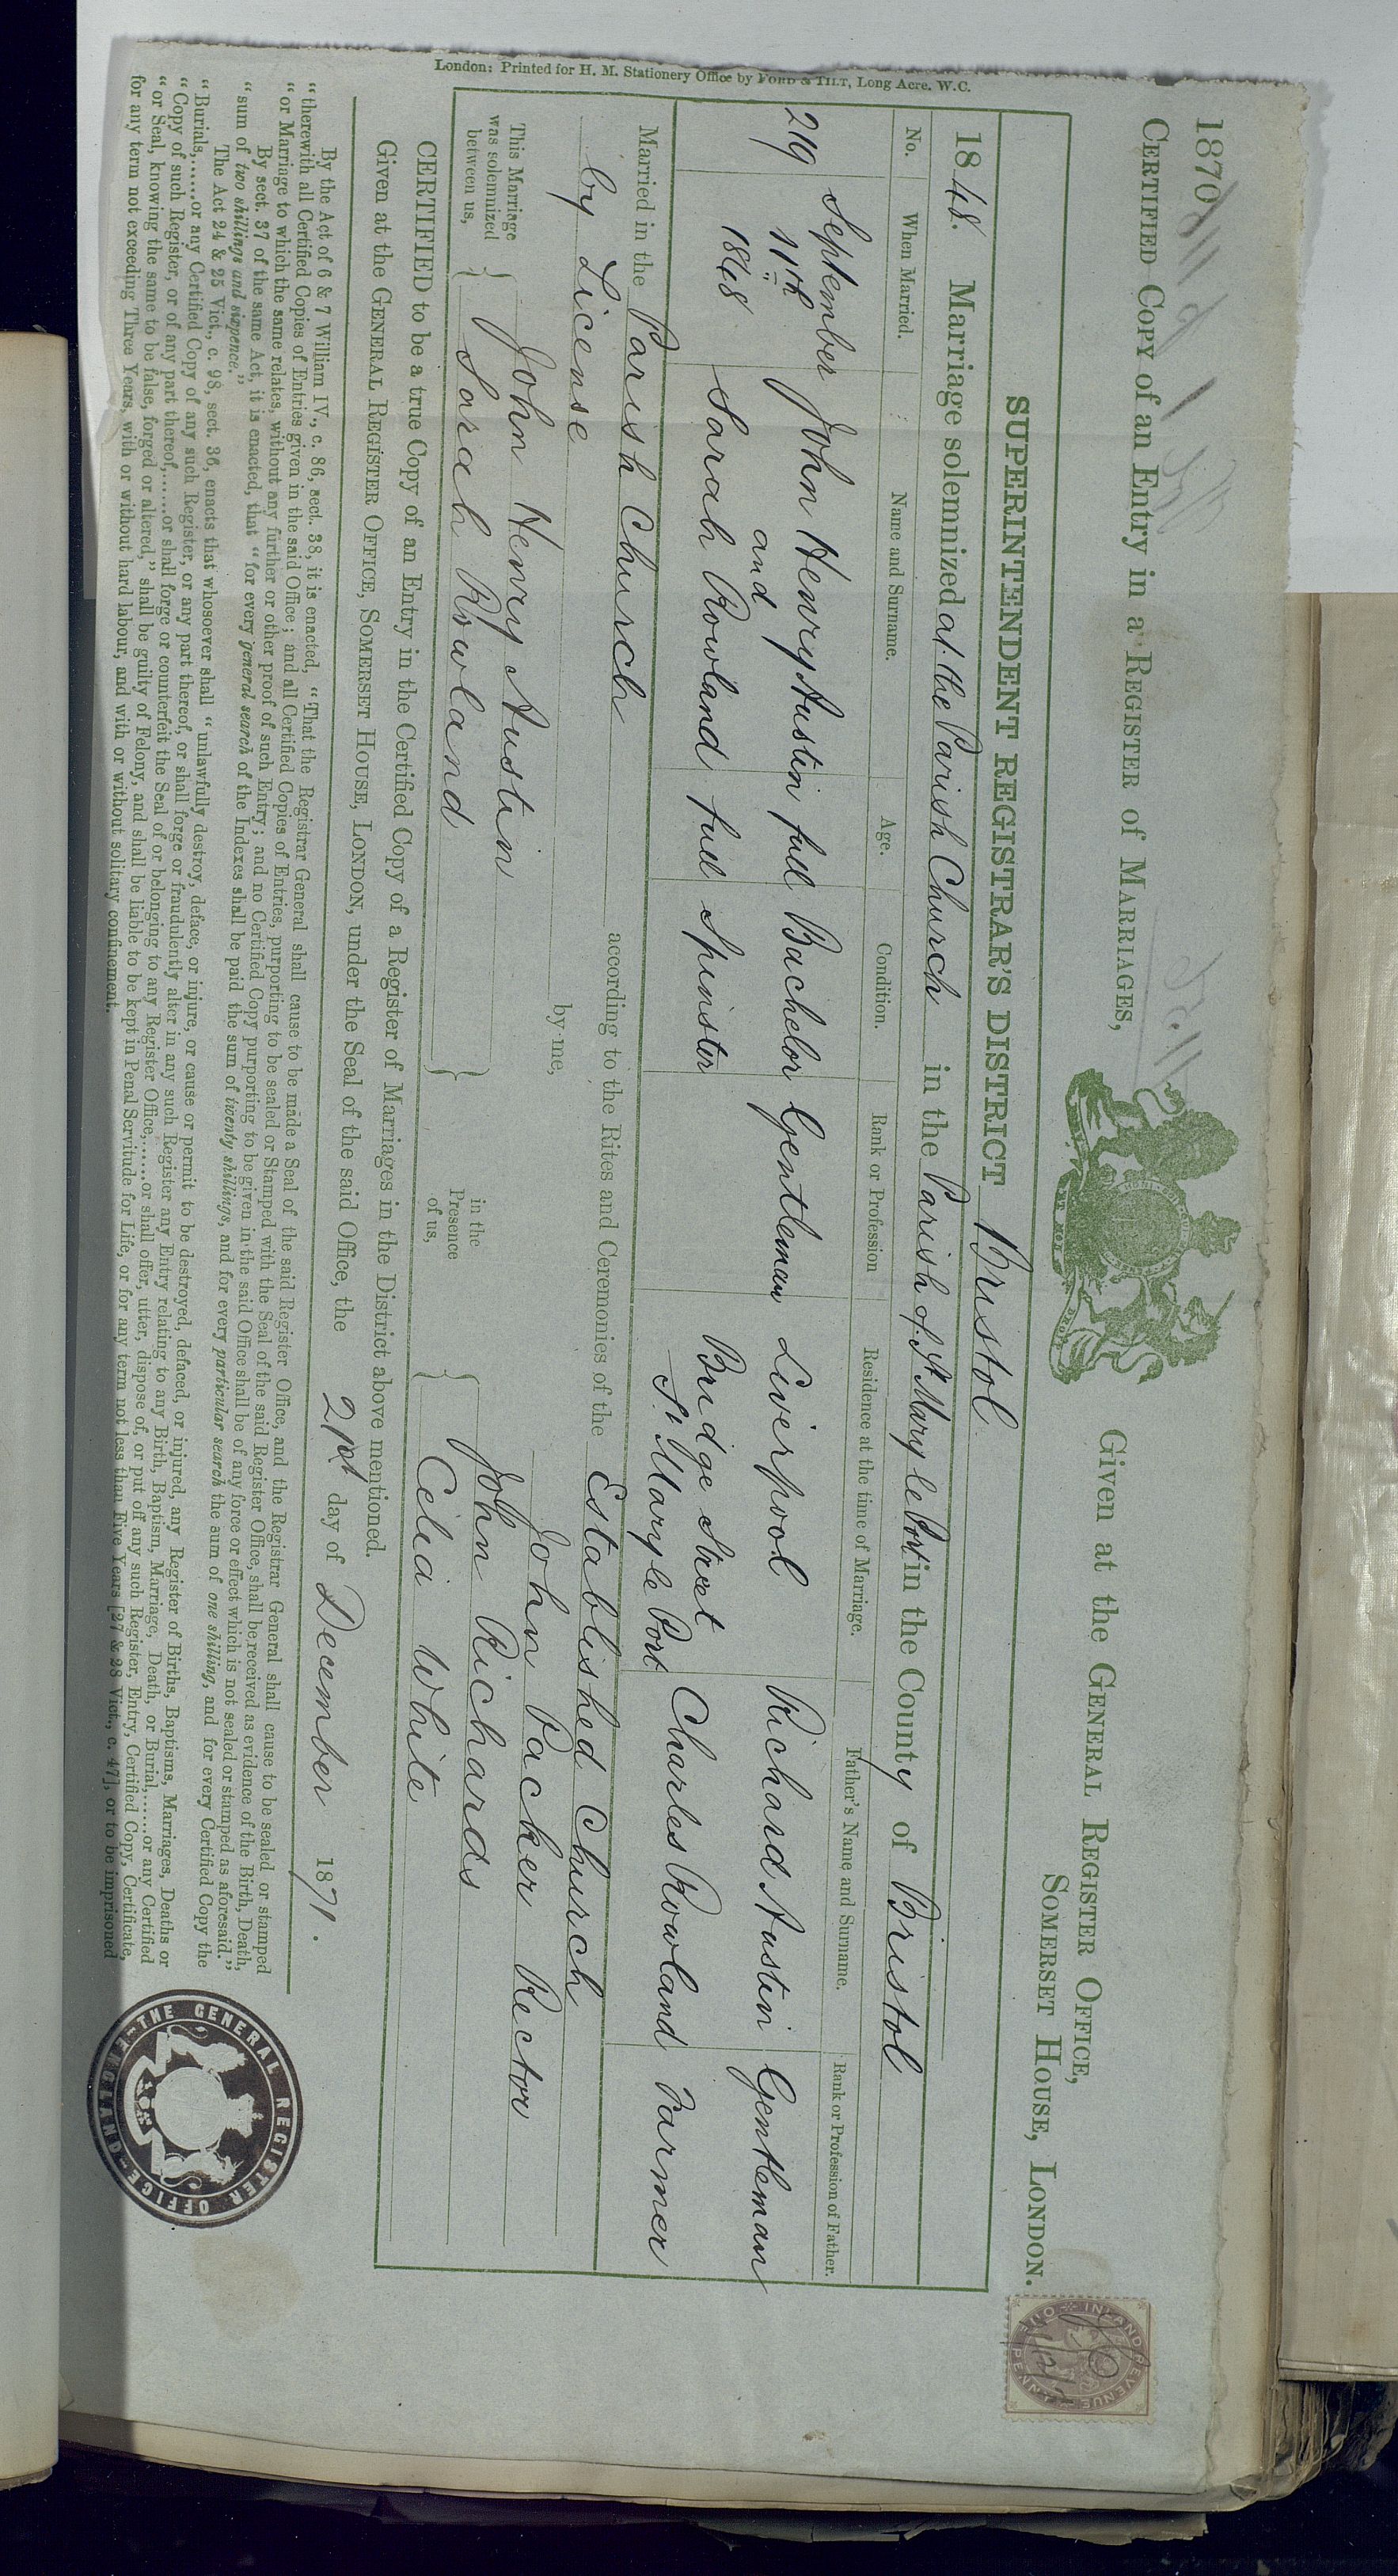 1870
CERTIFIED COPY of an Entry in a REGISTER OF MARRIAGES,
Given at the GENERAL REGISTER OFFICE,
SOMERSET HOUSE, LONDON.
INLAND REVENUE
ONE PENNY
SUPERINTENDENT REGISTRAR'S DISTRICT Bristol
1848. Marriage solemnized at the Parish Church in the Parish of St Mary le Port in the County of Bristol
No. When Married. Name and Surname. Age. Condition. Rank or Profession Residence at the time of Marriage. Father's Name and Surname. Rank or Profession of Father.
219 September 11th 1848 John Henry Austin full Bachelor Gentleman Liverpool Richard Austin Gentleman
and
Sarah Rowland full Spinster Bridge Street St Mary le Port Charles Rowland Farmer
Married in the Parish Church according to the Rites and Ceremonies of the Established Church
by License by me, John Packer Rector
This Marriage was solemnized between us, John Henry Austin Sarah Rowland in the Presence of us, John Richards Celia White
CERTIFIED to be a true Copy of an Entry in the Certified Copy of a Register of Marriages in the District above mentioned.
Given at the GENERAL REGISTER OFFICE, SOMERSET HOUSE, LONDON, under the Seal of the said Office, the 21st day of December 1871.
By the Act of 6 & 7 William IV., c. 86, sect. 38, it is enacted, "That the Registrar General shall cause to be made a Seal of the said Register Office, and the Registrar General shall cause to be sealed or stamped
"therewith all Certified Copies of Entries given in the said Office; and all Certified Copies of Entries, purporting to be sealed or Stamped with the Seal of the said Register Office, shall be received as evidence of the Birth, Death,
"or Marriage to which the same relates, without any further or other proof of such Entry; and no Certified Copy purporting to be given in the said Office shall be of any force or effect which is not sealed or stamped as aforesaid."
By sect. 37 of the same Act, it is enacted, that "for every general search of the Indexes shall be paid the sum of twenty shillings, and for every particular search the sum of one shilling, and for every Certified Copy the
"sum of two shillings and sixpence."
The Act 24 & 25 Vict., c. 98, sect. 36, enacts that whosoever shall "unlawfully destroy, deface, or injure, or cause or permit to be destroyed, defaced, or injured, any Register of Births, Baptisms, Marriages, Deaths or
"Burials,......or any Certified Copy of any such Register, or any part thereof, or shall forge or fraudulently alter in any such Register any Entry relating to any Birth, Baptism, Marriage, Death, or Burial,......or any Certified
"Copy of such Register, or of any part thereof,......or shall forge or counterfeit the Seal of or belonging to any Register Office,......or shall offer, utter, dispose of, or put off any such Register, Entry, Certified Copy, Certificate,
"or Seal, knowing the same to be false, forged or altered," shall be guilty of Felony, and shall be liable to be kept in Penal Servitude for Life, or for any term not less than Five Years [27 & 28 Vict., c. 47], or to be imprisoned
for any term not exceeding Three Years, with or without hard labour, and with or without solitary confinement.
THE GENERAL REGISTER OFFICE
London: Printed for H. M. Stationery Office by FORD & TILT, Long Acre. W.C.